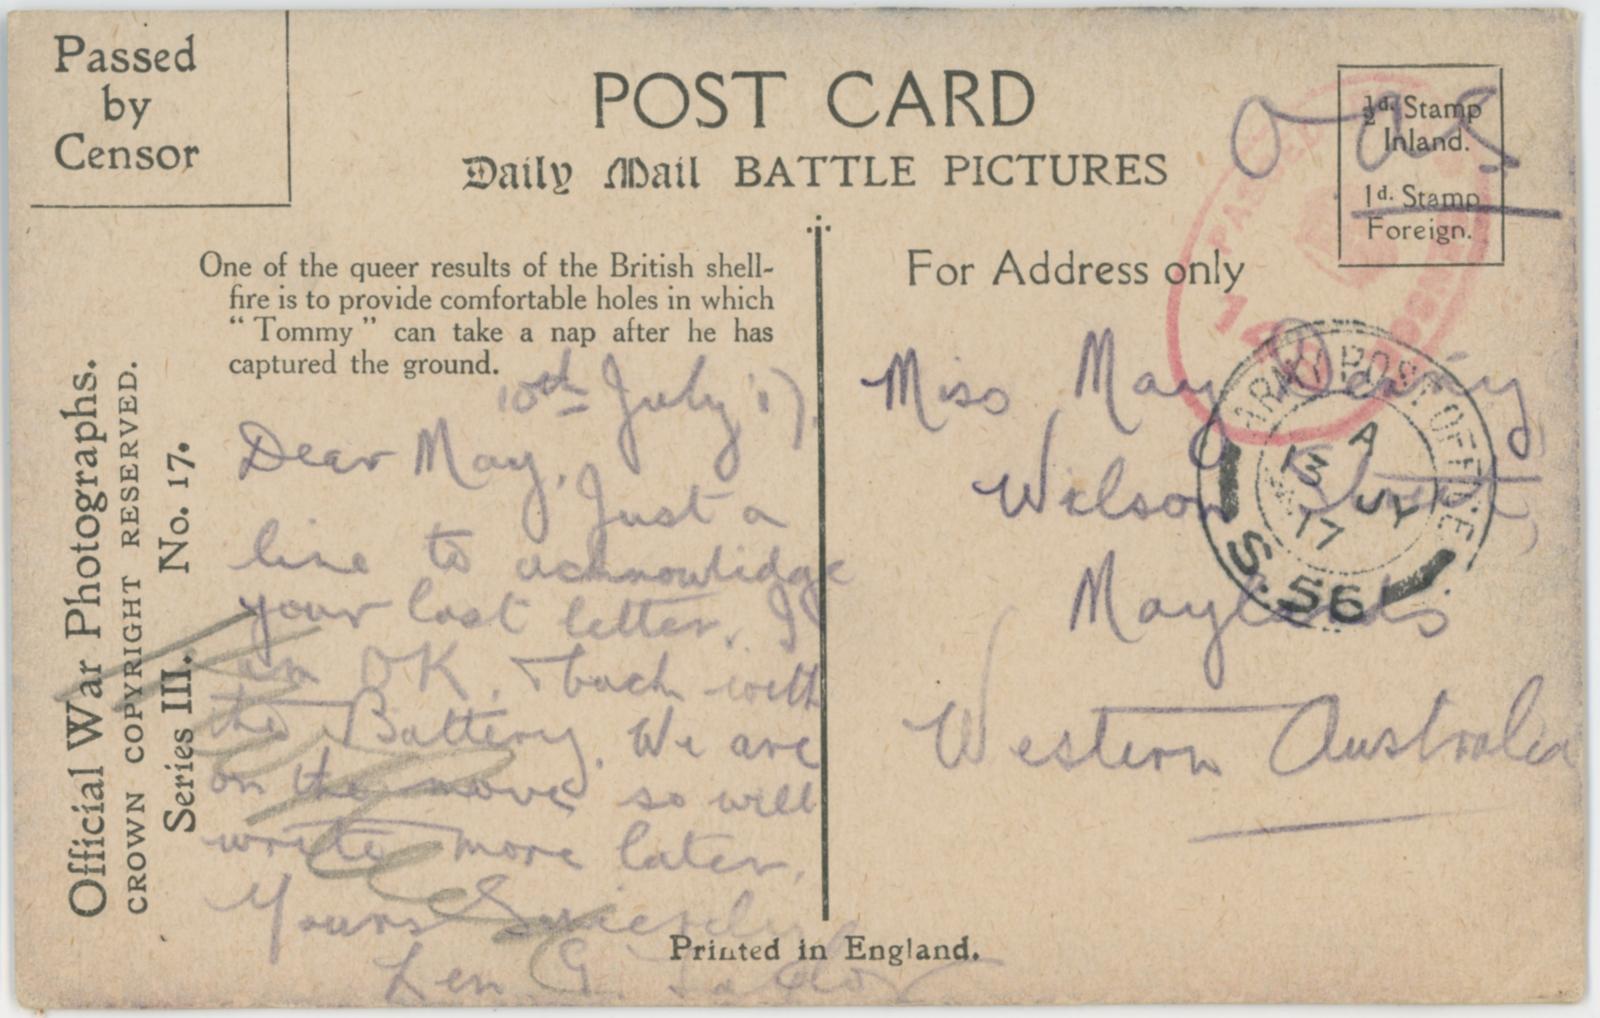 Passed
by
Censor
POST CARD
Daily Mail BATTLE PICTURES
½d. Stamp
Inland.
1d. Stamp
Foreign.
O A S
PASSED
One of the queer results of the British shell-
fire is to provide comfortable holes in which
“Tommy” can take a nap after he has
captured the ground.
Official War Photographs.
CROWN COPYRIGHT RESERVED.
Series III. No. 17.
10th July '17.
Dear May, Just a
line to acknowlidge
your last letter. I
am OK, back with
the Battery. We are
on the move so will
write more later.
Yours Sincerely
Len G.
For Address only
Miss May
Wilson Street,
Maylands
Western Australia
ARMY POST OFFICE
A
JY
17
S.56
Printed in England.